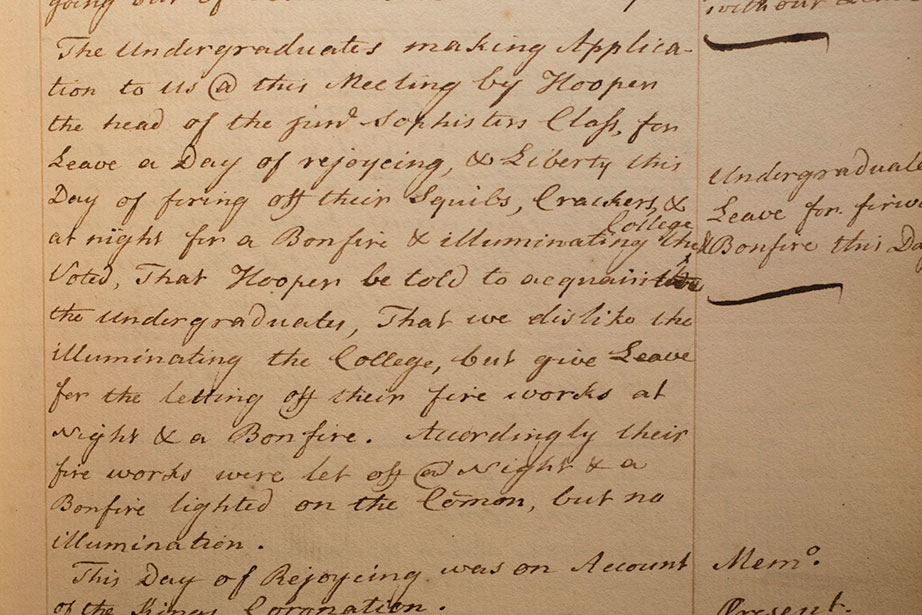 going out of
The Undergraduates making Applica-
tion to Us @ this Meeting by Hooper
the head of the junr Sophisters Class, for
Leave a Day of rejoycing, & Liberty this
Day of firing off their Squibs, Crackers, &
College
at night for a Bonfire & illuminating the
Voted, That Hooper be told to acquaint
the Undergraduates, That we dislike the
illuminating the College, but give Leave
for the letting off their fire works at
Night & a Bonfire. Accordingly their
fire works were let off @ Night & a
Bonfire lighted on the Com̄on, but no
illumination.
This Day of Rejoycing was on Account
of the Kings Coronation.
without
Undergraduate
Leave for firew
Bonfire this Da
Memo.
Present.